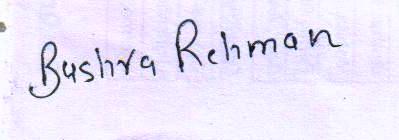 Bushra Rehman